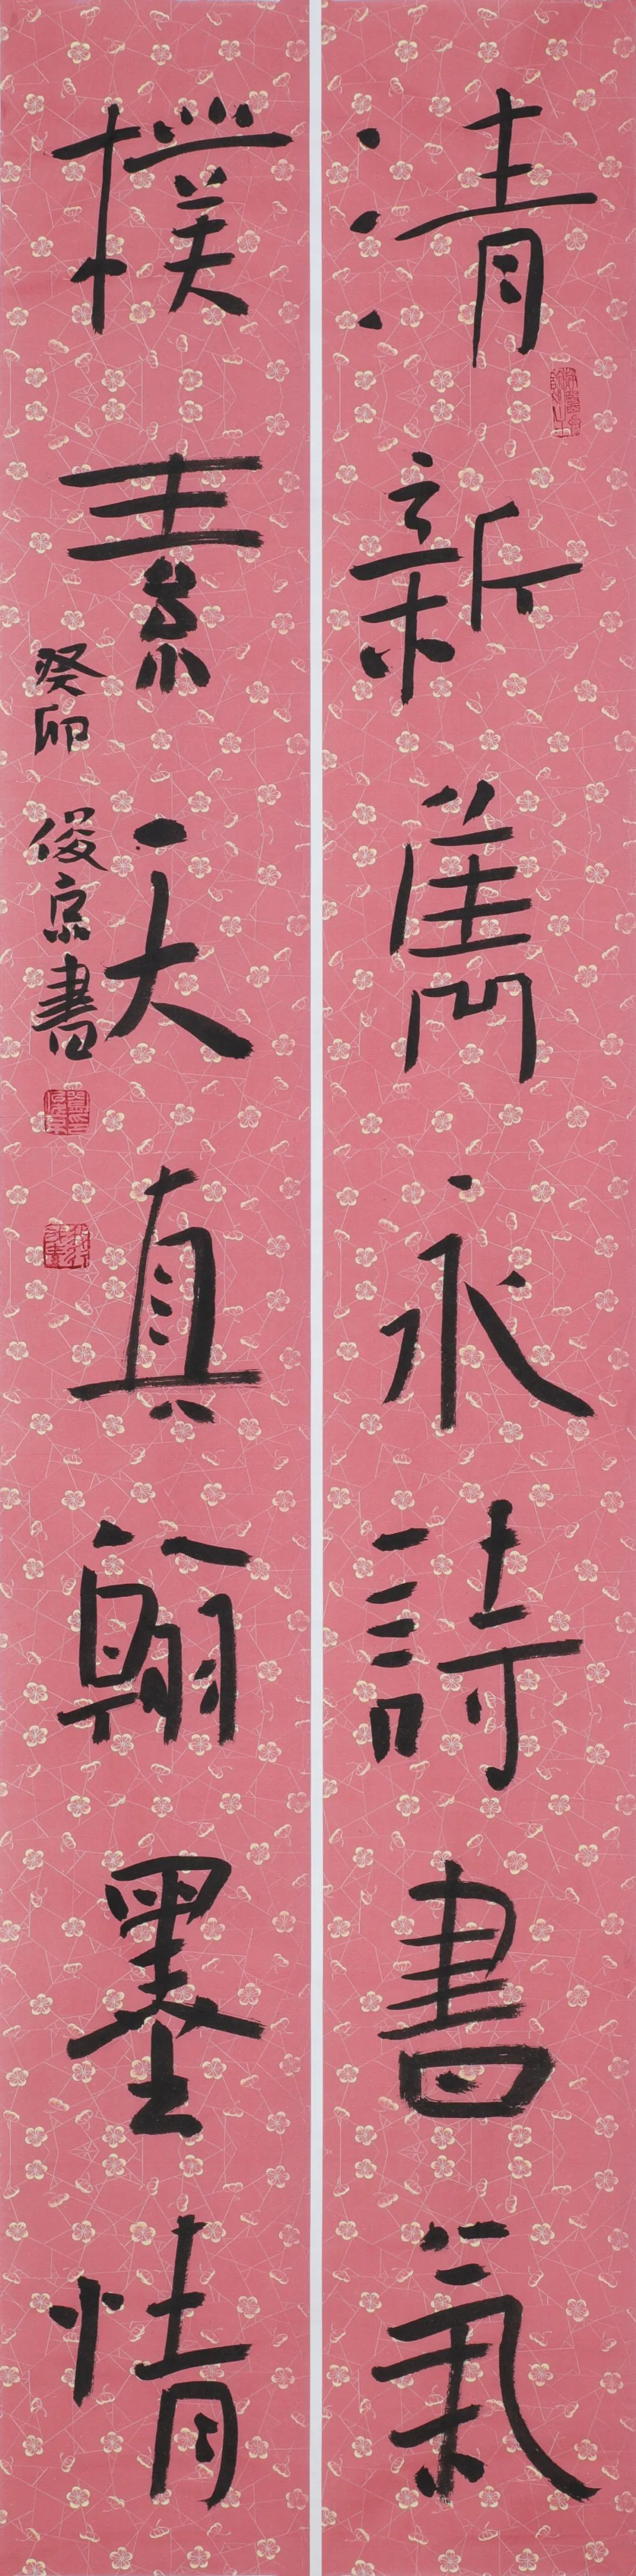 清新雋永詩書氣
樸素天真翰墨情
癸卯 俊京書